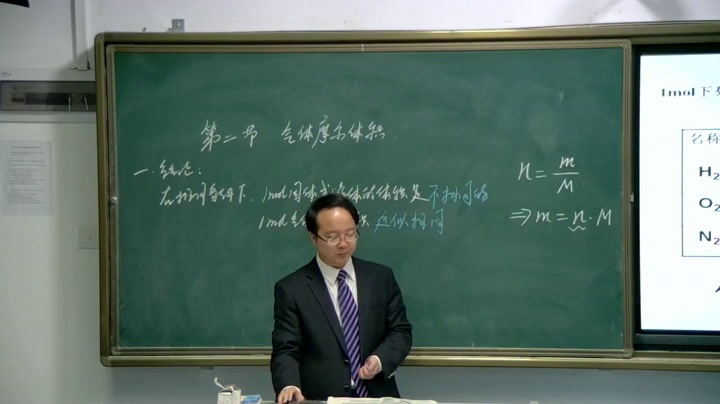 第二节 气体摩尔体积
一.结论:
在相同条件下, 1mol固体或液体的体积是不相同的
1mol气 近似相同
n = m/M
⇒ m = n · M
1mol下
名称
H₂
O₂
N₂